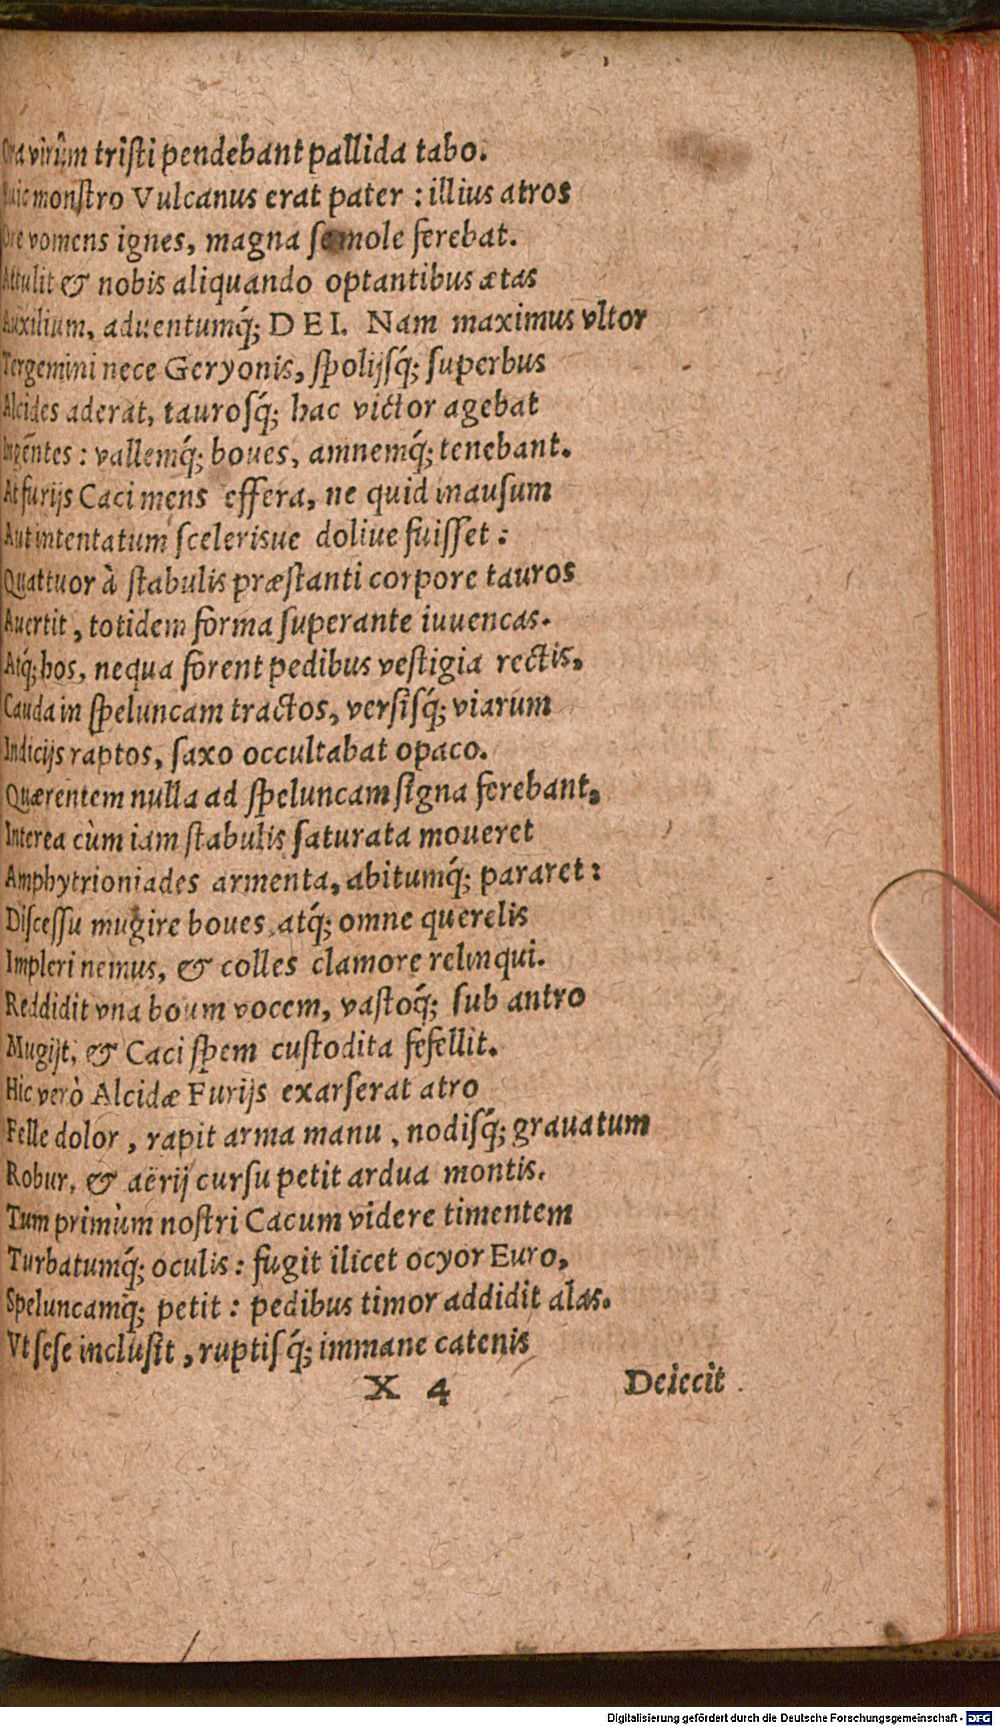 Ora virûm tristi pendebant pallida tabo.
Huic monstro Vulcanus erat pater : illius atros
Ore vomens ignes, magna se mole ferebat.
Attulit & nobis aliquando optantibus ætas
Auxilium, aduentumq́; DEI. Nam maximus vltor
Tergemini nece Geryonis, spolijsq́; superbus
Alcides aderat, taurosq́; hac victor agebat
Ingẽntes : vallemq́; boues, amnemq́; tenebant.
At furijs Caci mens effera, ne quid inausum
Aut intentatum scelerisue doliue fuisset :
Quattuor à stabulis præstanti corpore tauros
Auertit, totidem forma superante iuuencas.
Atq́; hos, nequa forent pedibus vestigia rectis,
Cauda in speluncam tractos, versisq́; viarum
Indicijs raptos, saxo occultabat opaco.
Quærentem nulla ad speluncam signa ferebant,
Interea cùm iam stabulis saturata moueret
Amphytrioniades armenta, abitumq́; pararet :
Discessu mugire boues, atq́; omne querelis
Impleri nemus, & colles clamore relinqui.
Reddidit vna boum vocem, vastoq́; sub antro
Mugijt, & Caci spem custodita fefellit.
Hic verò Alcidæ Furijs exarserat atro
Felle dolor, rapit arma manu, nodisq́; grauatum
Robur, & aërij cursu petit ardua montis.
Tum primùm nostri Cacum videre timentem
Turbatumq́; oculis : fugit ilicet ocyor Euro,
Speluncamq́; petit : pedibus timor addidit alas.
Vt sese inclusit, ruptisq́; immane catenis
X 4 Deiecit
Digitalisierung gefördert durch die Deutsche Forschungsgemeinschaft - DFG